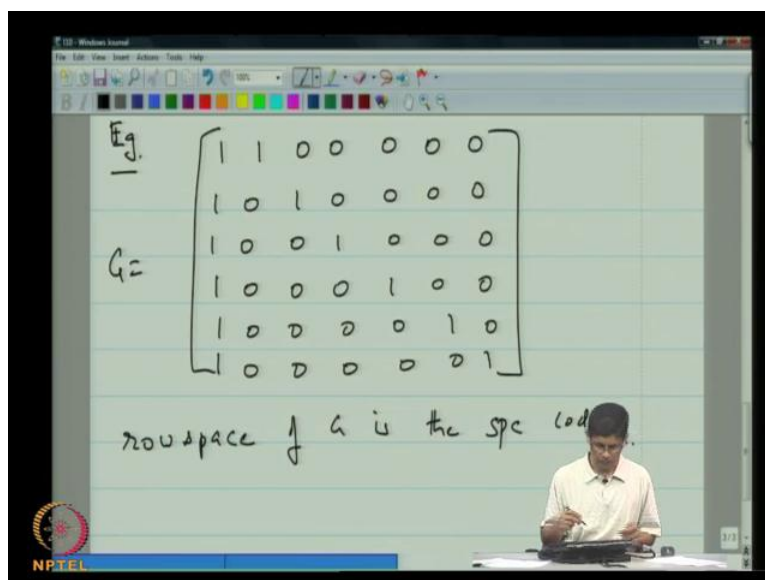 Windows Journal
File Edit View Insert Actions Tools Help
100%
B I
Eg.
1 1 0 0 0 0 0
1 0 1 0 0 0 0
1 0 0 1 0 0 0
G=
1 0 0 0 1 0 0
1 0 0 0 0 1 0
1 0 0 0 0 0 1
rowspace of G is the spc
3/3
NPTEL